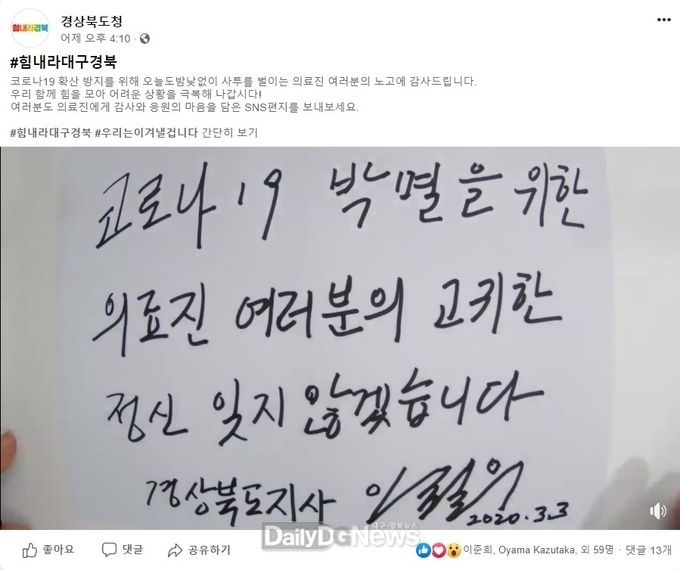 힘내라경북
경상북도청
어제 오후 4:10
#힘내라대구경북
코로나19 확산 방지를 위해 오늘도밤낮없이 사투를 벌이는 의료진 여러분의 노고에 감사드립니다.
우리 함께 힘을 모아 어려운 상황을 극복해 나갑시다!
여러분도 의료진에게 감사와 응원의 마음을 담은 SNS편지를 보내보세요.
#힘내라대구경북 #우리는이겨낼겁니다 간단히 보기
코로나19 박멸을 위한
의료진 여러분의 고키한
정신 잊지 않겠습니다
경상북도지사
2020.3.3
대구·경북뉴스
DailyDGNews
좋아요 댓글 공유하기 이준희, Oyama Kazutaka, 외 59명 · 댓글 13개